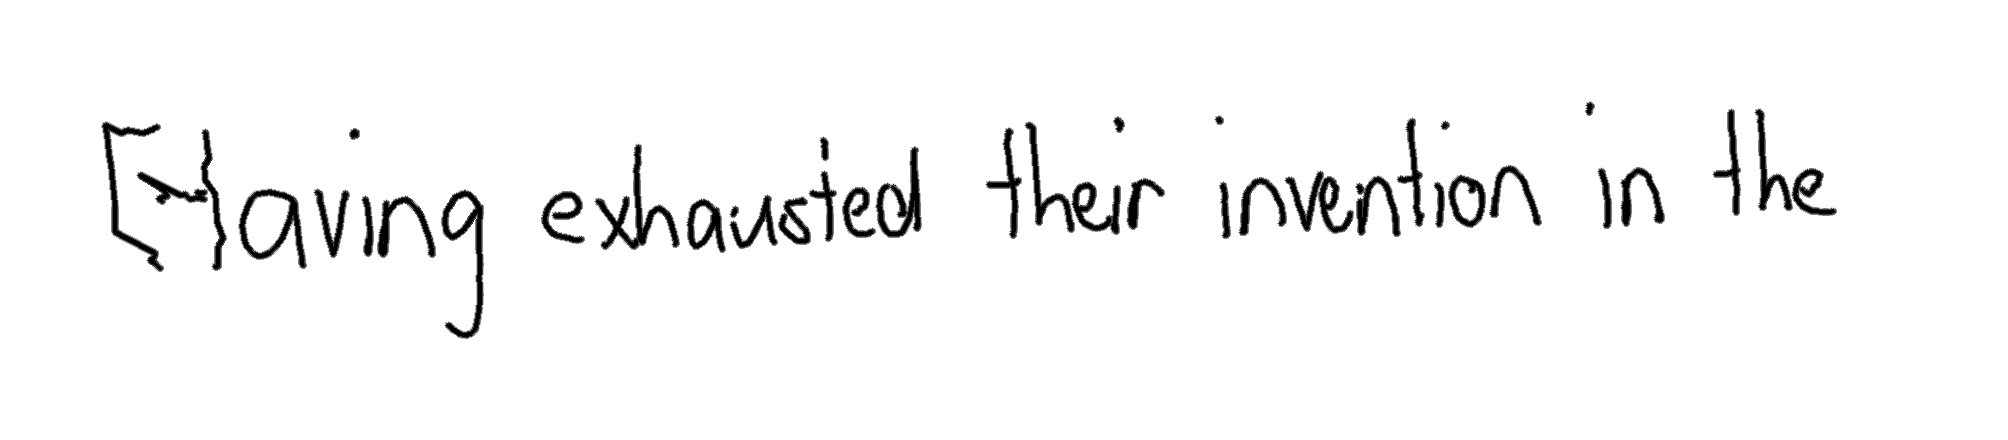 Having exhausted their invention in the